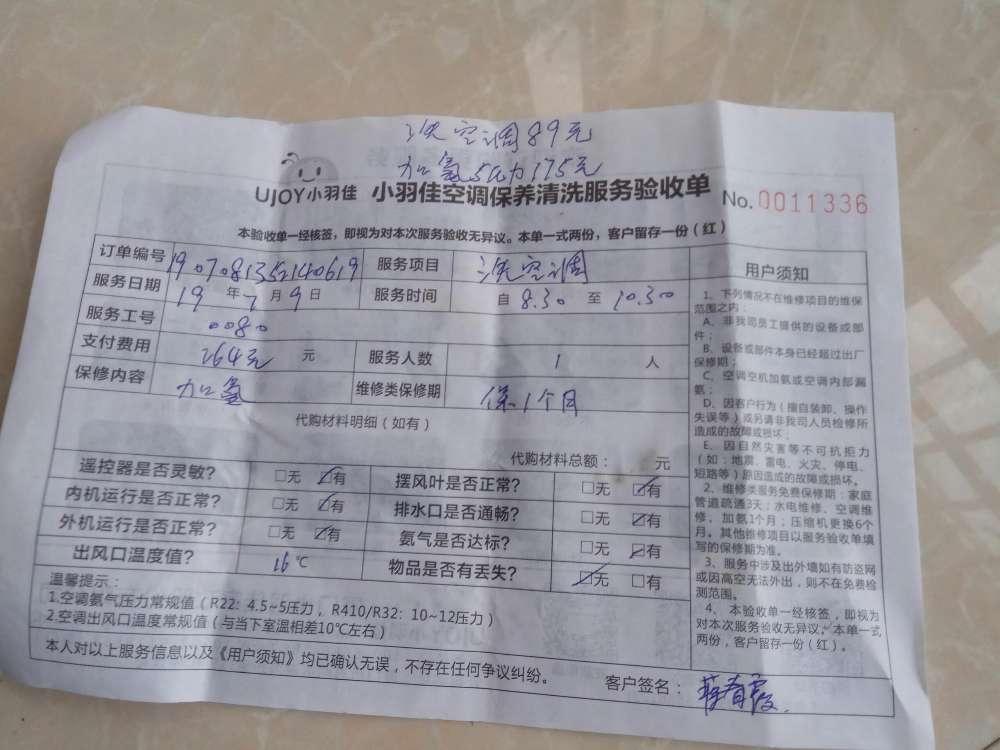 洗空调89元
加氨5压力175元
UJOY小羽佳 小羽佳空调保养清洗服务验收单 No.0011336
本验收单一经核签，即视为对本次服务验收无异议。本单一式两份，客户留存一份（红）
订单编号 1907081352140619 服务项目 洗空调
服务日期 19年7月9日 服务时间 自 8.30 至 10.30
服务工号 0080
支付费用 264元 元 服务人数 1 人
保修内容 加氨 维修类保修期 保1个月
代购材料明细（如有）
代购材料总额： 元
遥控器是否灵敏？ □无 ☑有 摆风叶是否正常？ □无 ☑有
内机运行是否正常？ □无 ☑有 排水口是否通畅？ □无 ☑有
外机运行是否正常？ □无 ☑有 氨气是否达标？ □无 ☑有
出风口温度值？ 16℃ 物品是否有丢失？ ☑无 □有
温馨提示：
1.空调氨气压力常规值（R22：4.5~5压力，R410/R32：10~12压力）
2.空调出风口温度常规值（与当下室温相差10℃左右）
本人对以上服务信息以及《用户须知》均已确认无误，不存在任何争议纠纷。
客户签名：
用户须知
1、下列情况不在维修项目的维保
范围之内：
A、非我司员工提供的设备或部
件；
B、设备或部件本身已经超过出厂
保修期；
C、空调空机加氨或空调内部漏
氨；
D、因客户行为（擅自装卸、操作
失误等）或另请非我司人员检修所
造成的故障或损坏；
E、因自然灾害等不可抗拒力
（如：地震、雷电、火灾、停电、
短路等）原因造成的故障或损坏。
2、维修类服务免费保修期：家庭
管道疏通3天；水电维修、空调维
修、加氨1个月；压缩机更换6个
月。其他维修项目以服务验收单填
写的保修期为准。
3、服务中涉及出外墙如有防盗网
或因高空无法外出，则不在免费检
测范围。
4、本验收单一经核签，即视为
对本次服务验收无异议。本单一式
两份，客户留存一份（红）。